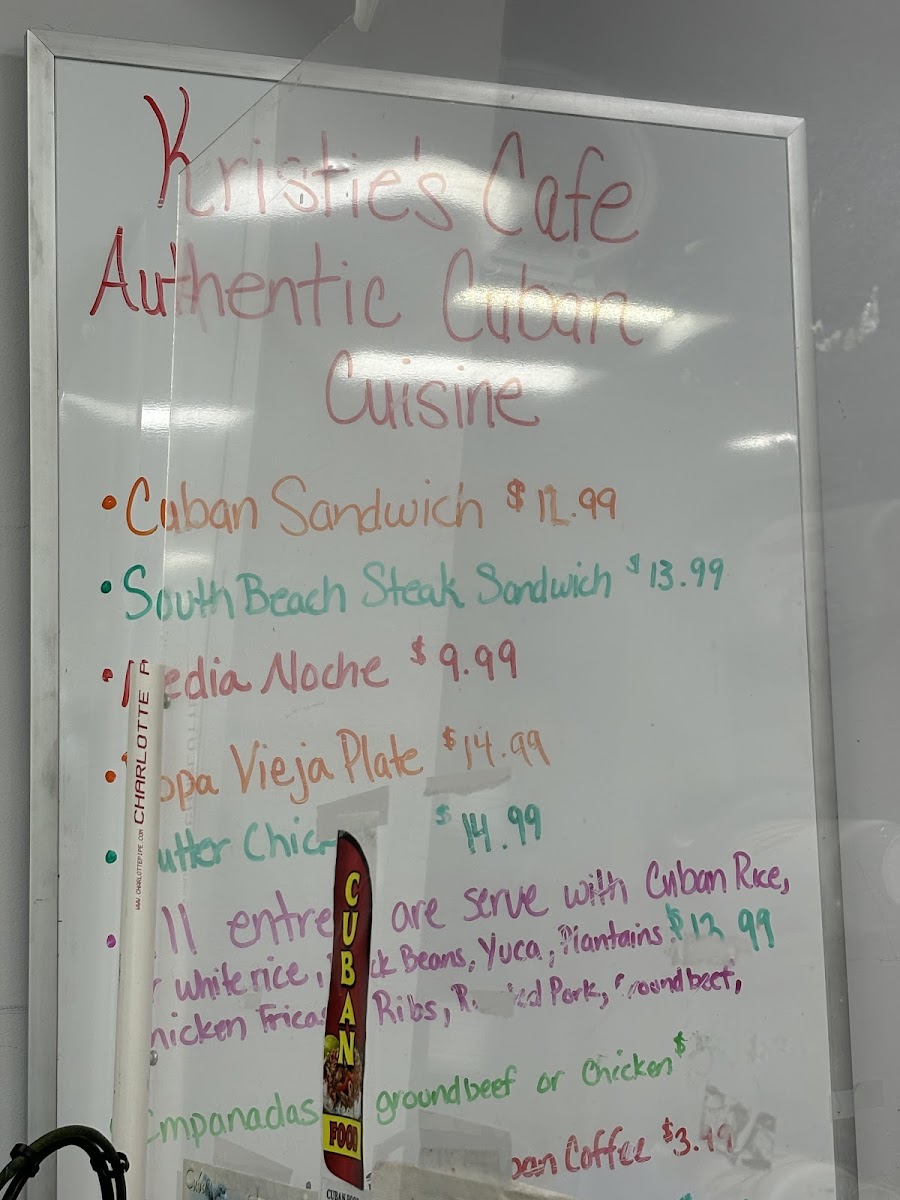 Kristie's Cafe
Authentic Cuban
Cuisine
• Cuban Sandwich $ 11.99
• South Beach Steak Sandwich $ 13.99
• Media Noche $ 9.99
• opa Vieja Plate $ 14.99
• utter Chic $ 14.99
• ll entre are serve with Cuban Rice,
r white rice, ck Beans, Yuca, Plantains $ 12.99
hicken Frica Ribs, Pork, round beef,
Empanadas ground beef or Chicken $
ban Coffee $3.49
CHARLOTTE
WWW.CHARLOTTEPIPE.COM
CUBAN
FOOD